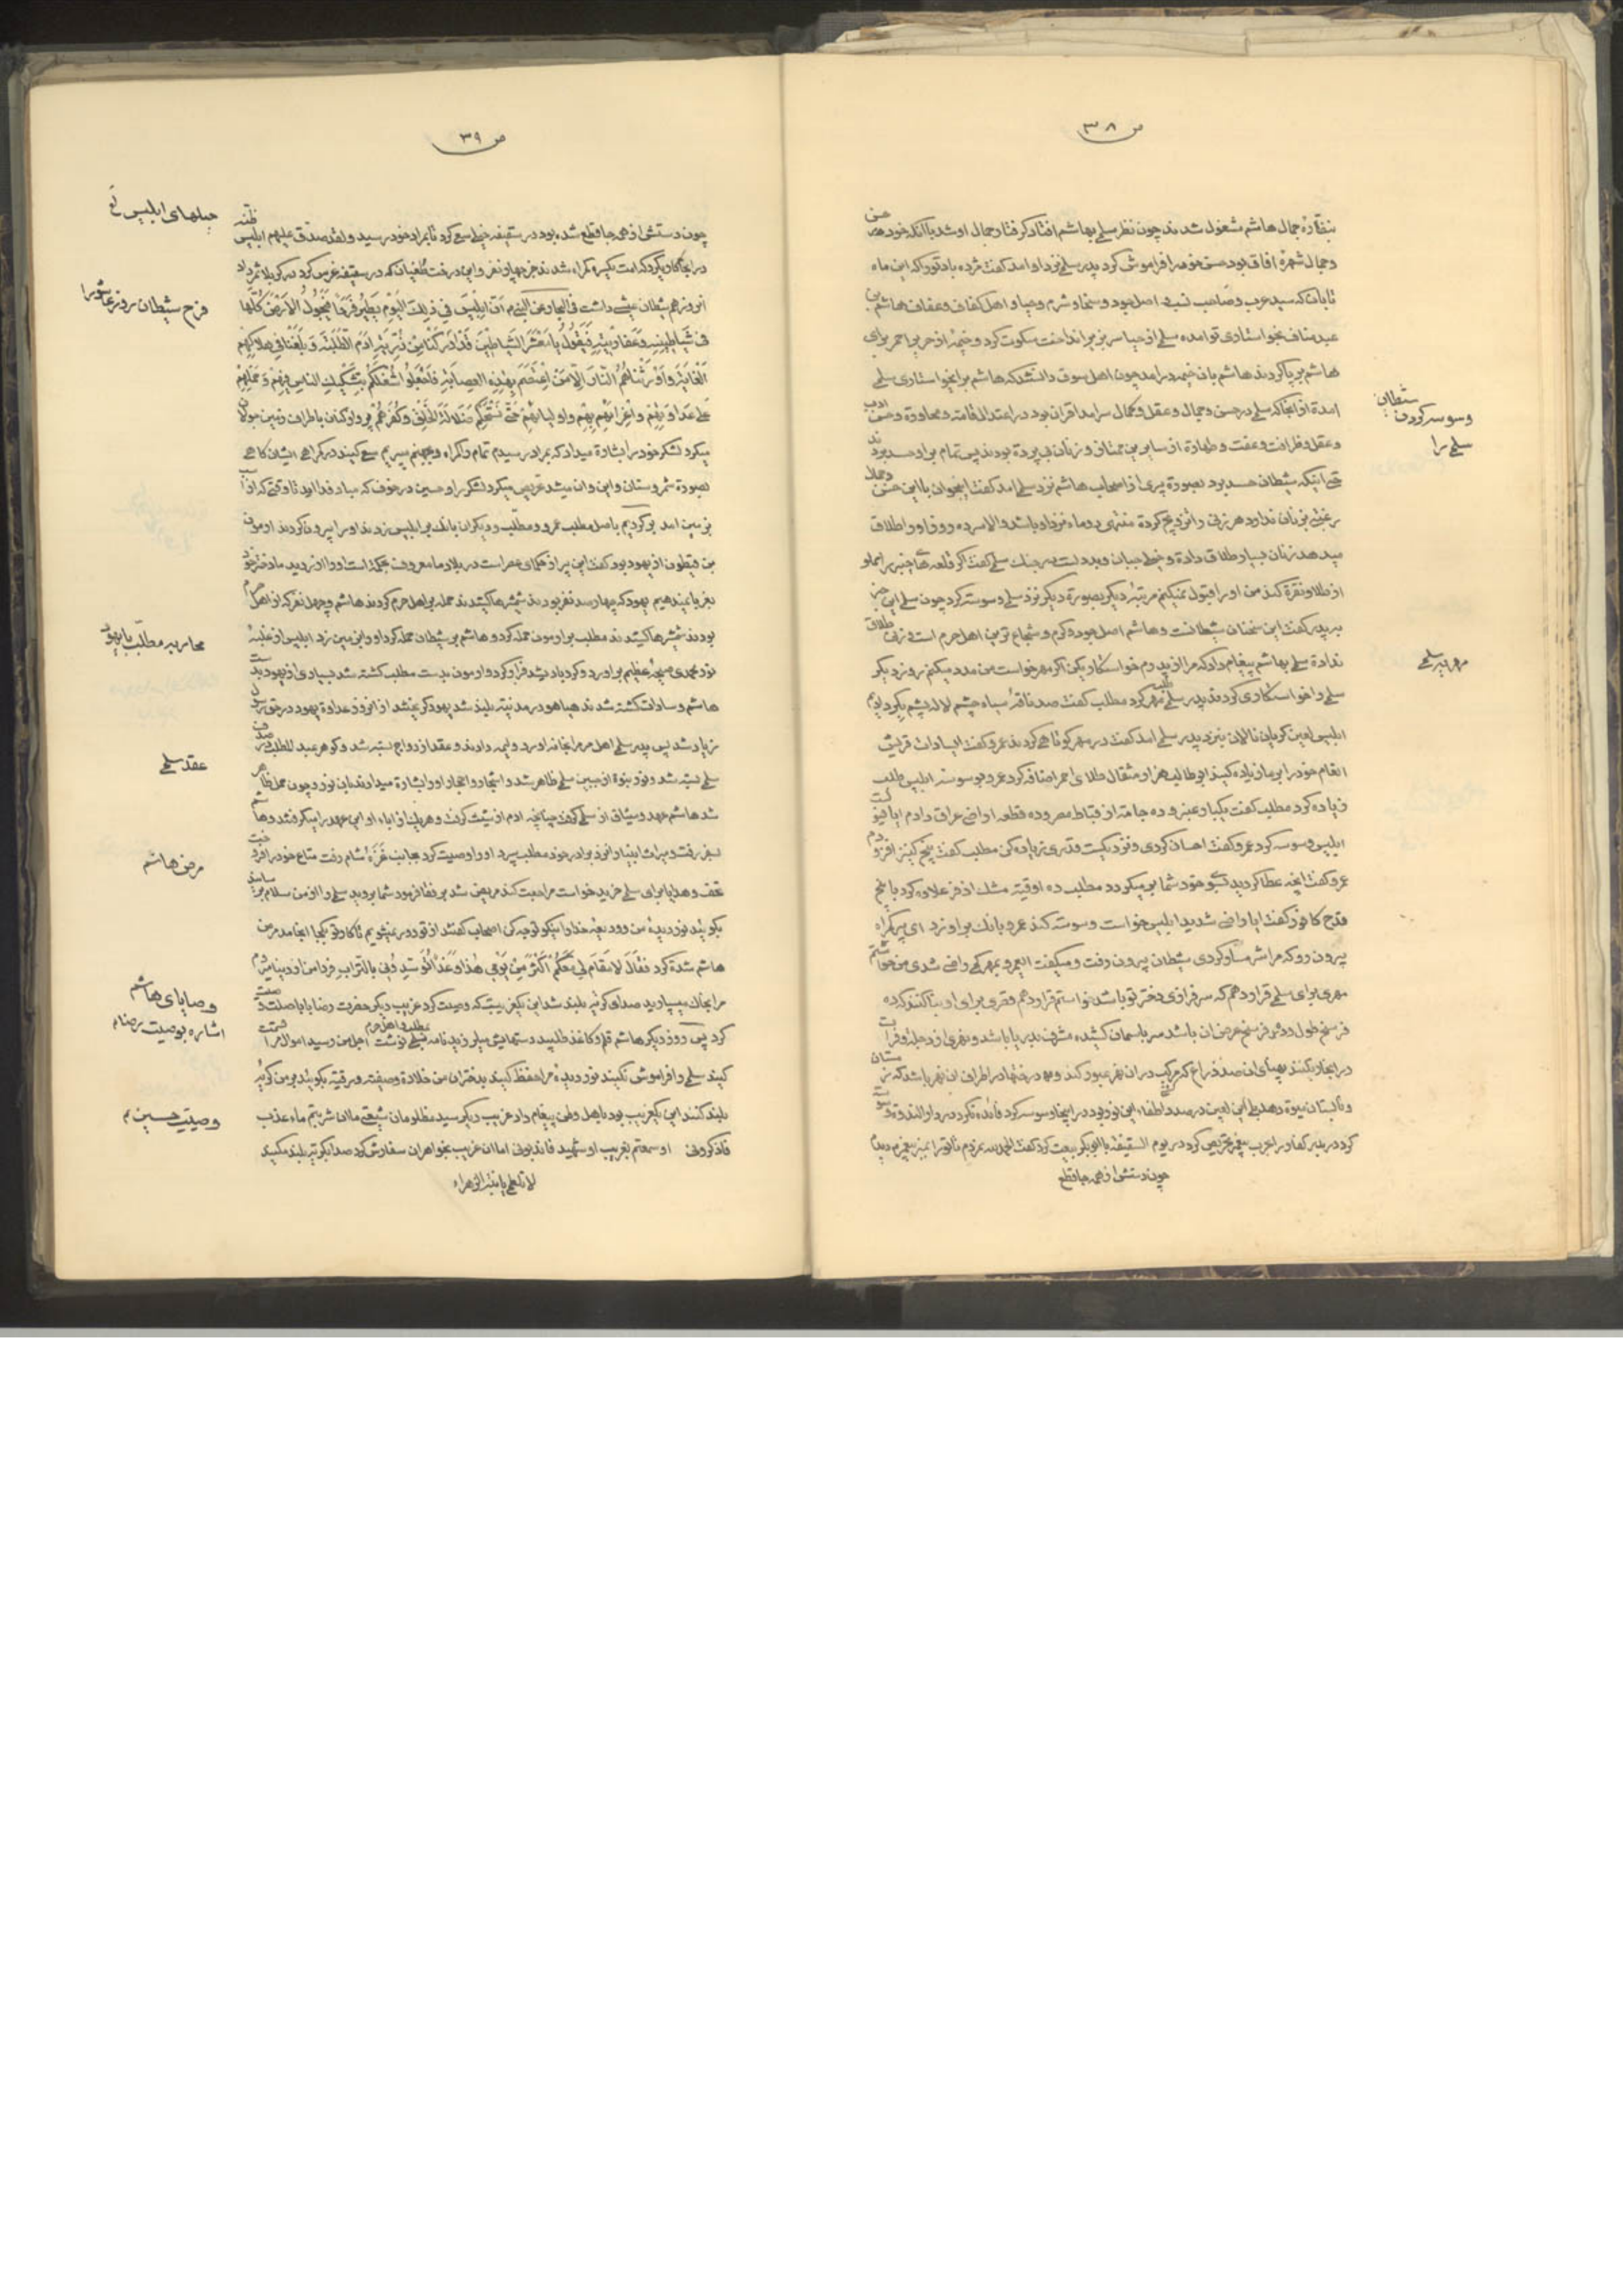 ص ۳۸
بنظارهٔ جمال هاشم مشغول شدند چون نظر سلمی بهاشم افتاد گرفتار جمال او شد با آنکه خود در حسن
و جمال شهرهٔ افاق بود حسن خود را فراموش کرد پدر سلمی نزد او امد گفت مژده باد تو را که این ماه
تابان که سید عرب و صاحب نسب اصل جود و سخا و شرم و حیا و اهل کفاف و عفاف هاشم بن
عبد مناف بخواستاری تو امده سلمی از حیا سر بزیر انداخت سکوت کرد و خیمهٔ از حریر احمر برای
هاشم بر پا کردند هاشم بان خیمه درامد چون اهل سوق دانستند که هاشم برای خواستاری سلمی
امده از انجا که سلمی در حسن و جمال و عقل و کمال سرامد اقران بود در اعتدال قامت و محاوره و حسن ادب
و عقل و ظرافت و عفت و طهارة از سایرین ممتاز و زنان بی پرده بودند پس تمام بر او حسد بردند
حتی اینکه شیطان حسد برد بصورة پیری از اصحاب هاشم نزد سلمی امد گفت اینجوان با این حسن و جمال
رغبتی بزنان ندارد هر زنی را تزویج کرده منتهی دو ماه نزد او باشد والا سر ده روز او را طلاق
میدهد زنان بسیار طلاق داده و خیلی جبان و بددل است در جنگ سلمی گفت اگر قلعه های خیبر را مملو
از طلا و نقره کند من او را قبول نمیکنم مرتبهٔ دیگر بصورة دیگر نزد سلمی وسوسه کرد چون سلمی این خبر
بپدر گفت این سخنان شیطانست و هاشم اصل جود و کرم و شجاع ترین اهل حرم است زنی طلاق
نداده سلمی بهاشم پیغام داد که مرا از پدرم خواستگاری کن اگر مهر خواست من مدد میکنم روز دیگر
سلمی را خواستگاری کردند پدر سلمی طلب مهر کرد مطلب گفت صد ناقهٔ سیاه چشم لاله پشم بکر دادیم
ابلیس لعین گریان نالان بنزد پدر سلمی امد گفت در مهر کوتاهی کردند عمرو گفت ای سادات قریش
انعام خود را بر ما زیاده کنید ابو طالب هزار مثقال طلای احمر اضافه کرد عمرو بوسوسه ابلیس طلب
زیاده کرد مطلب گفت یکبار عنبر و ده جامه از قباط مصر و ده قطعه اراضی عراق دادم ایا راضیست
ابلیس وسوسه کرد عمرو گفت احسان کردی و نزدیکست قدری زیاده کن مطلب گفت پنج کنیز افزودم
عمرو گفت انچه عطا کردید بسوی خود شما برمیگردد مطلب ده اوقیه مشک اذفر علاوه کرد با پنج
قدح کافور گفت ایا راضی شدید ابلیس خواست وسوسه کند عمرو بانک بر او زد ای پیر گمراه
بیرون رو که مرا شرمسار کردی شیطان بیرون رفت و میگفت ای عمرو بمهر کمی راضی شدی من خواستم
مهری برای سلمی قرار دهم که سرفرازی دختر تو باشد خواستم قرار دهم قصری برای او بنا کنند که ده
فرسخ طول و دو فرسخ عرض ان باشد سر باسمان کشیده مشرف بدریا باشد و نهری از دجله و فرات
در انجا روان کنند بپهنای ان صد ذراع که مرکب در ان نهر عبور کند و بعد درختها در اطراف ان نهر باشد که زمستان
و تابستان میوه دهد بلی این لعین در صدد اطفاء این نور بود در اینجا وسوسه کرد فائده نکرد در دار الندوة وسوسه
کرد در بدر کفار را بحرب پیغمبر تحریص کرد در یوم السقیفه با ابوبکر بیعت کرد گفت الحمدلله نمردم تا تو را بمنبر پیغمبرم دیدم
چون دستش از همه جا قطع
شیطان
وسوسه کردن
سلمی را
مهریه سلمی
ص ۳۹
چون دستش از همه جا قطع شده بود در سقیفه خیلی سعی کرد تا بمراد خود رسید و لقد صدق علیهم ابلیس ظنه
در انجا کاری کرد که امت یکسره گمراه شدند جز چهار نفر و این درخت طغیان که در سقیفه غرس کرد در کربلا ثمر داد
انروز هم شیطان عیشی داشت فی البحار عن النبی ص ان ابلیس فی ذلک الیوم یطیر فرحا فیجول الارض کلها
فی شیاطینه و عفاریته فیقول یا معشر الشیاطین قد ادرکنا من ذریة ادم الطلبة و بلغنا فی هلاکهم
الغایة و اورثناهم النار الا من اعتصم بهذه العصابة فاجعلوا شغلکم بتشکیک الناس فیهم و حملهم
علی عداوتهم و اغرائهم بهم و اولیائهم حتی تستحکم ضلالة الخلق و کفرهم پرواز کنان باطراف زمین جولان
میکرد لشکر خود را بشارة میداد که بمراد رسیدم تمام را گمراه و بجهنم میبریم سعی کنید در گمراهی ایشان گاهی
بصورة شمر و سنان و این و ان میشد تحریص میکرد لشکر را و حسین در خوف که مباد فدا اید تا وقتی که از اسب
بزمین امد برگردیم باصل مطلب عمرو و مطلب و دیگران بانک بر ابلیس زدند او را بیرون کردند ارمون
بن قیطون از یهود بود گفت این پیر از حکمای عصر است در بلاد ما معروف بحکمت است او را از دید ما دختر خود
بغریبا نمیدهیم یهود که چهار صد نفر بودند شمشیرها کشیدند حمله بر اهل حرم کردند هاشم و چهل نفر که از اهل حرم
بودند شمشیرها کشیدند مطلب بر ارمون حمله کرد و هاشم بر شیطان حمله کرد او را بزمین زد ابلیس از غلبهٔ
نور محمدی صیحهٔ عظیم براورد و گرد باد شد فرار کرد و ارمون بدست مطلب کشته شد بسیاری از یهود بدست
هاشم و سادات کشته شدند هیاهو در مدینه بلند شد یهود گریختند از انروز عداوة یهود در حق رسول
زیاد شد پس پدر سلمی اهل حرم را بخانه اورد ولیمه دادند و عقد ازدواج بسته شد و گوهر عبد المطلب در صدف
سلمی بسته شد و نور نبوة از جبین سلمی ظاهر شد و اشجار و احجار او را بشارة میدادند بان نور و چون حمل ظاهر
شد هاشم عهد و میثاق از سلمی گرفت چنانچه ادم از شیث گرفت و هر یک از اباء او این عهد را میگرفتند و هاشم
بسفر رفت و میراث انبیا را نزد برادر خود مطلب سپرد او را وصیت کرد بجانب غزهٔ شام رفت متاع خود را فروخت
تحف و هدایا برای سلمی خرید خواست مراجعت کند مریض شد برفقا فرمود شما بروید سلمی را از من سلام برسانید
بگوئید نور دیدهٔ من رود بعهد خدا را نیکو توجه کن اصحاب گفتند از تو دور نمیشویم تا کار تو بکجا انجامد مرض
هاشم شدة کرد فقال لا مقام لی معکم اکثر من یومی هذا و غدا توسدونی بالتراب فردا من از دنیا میروم
مرا بخاک بسپارید صدای گریه بلند شد این یکغریبیست که وصیت کرد غریب دیگر حضرت رضا بابا صلت وصیت
کرد پس روز دیگر هاشم قلم و کاغذ طلبید دستهایش میلرزید نامه بمطلب و اهل حرم نوشت اجل من رسید اموال مرا قسمت
کنید سلمی را فراموش نکنید نور دیدهٔ مرا حفظ کنید بدختران من خلاده و صفیه و رقیه بگوئید بر من گریه
بلند کنند این یکغریب بود باهل وطن پیغام داد غریب دیگر سید مظلومان شیعتی ما ان شربتم ماء عذب
فاذکرونی او سمعتم بغریب او شهید فاندبونی اما ان غریب بخواهران سفارش کرد صدا بگریه بلند مکنید
لا تلطمی یا بنة الزهراء
حیلهای ابلیس لع
فرح شیطان روز عاشورا
محاربه مطلب با یهود
عقد سلمی
مرض هاشم
وصایای هاشم
اشاره بوصیت رضا ع
وصیت حسین ع